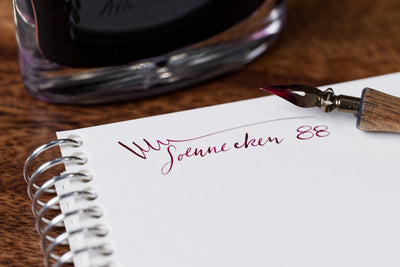 Soennecken 88